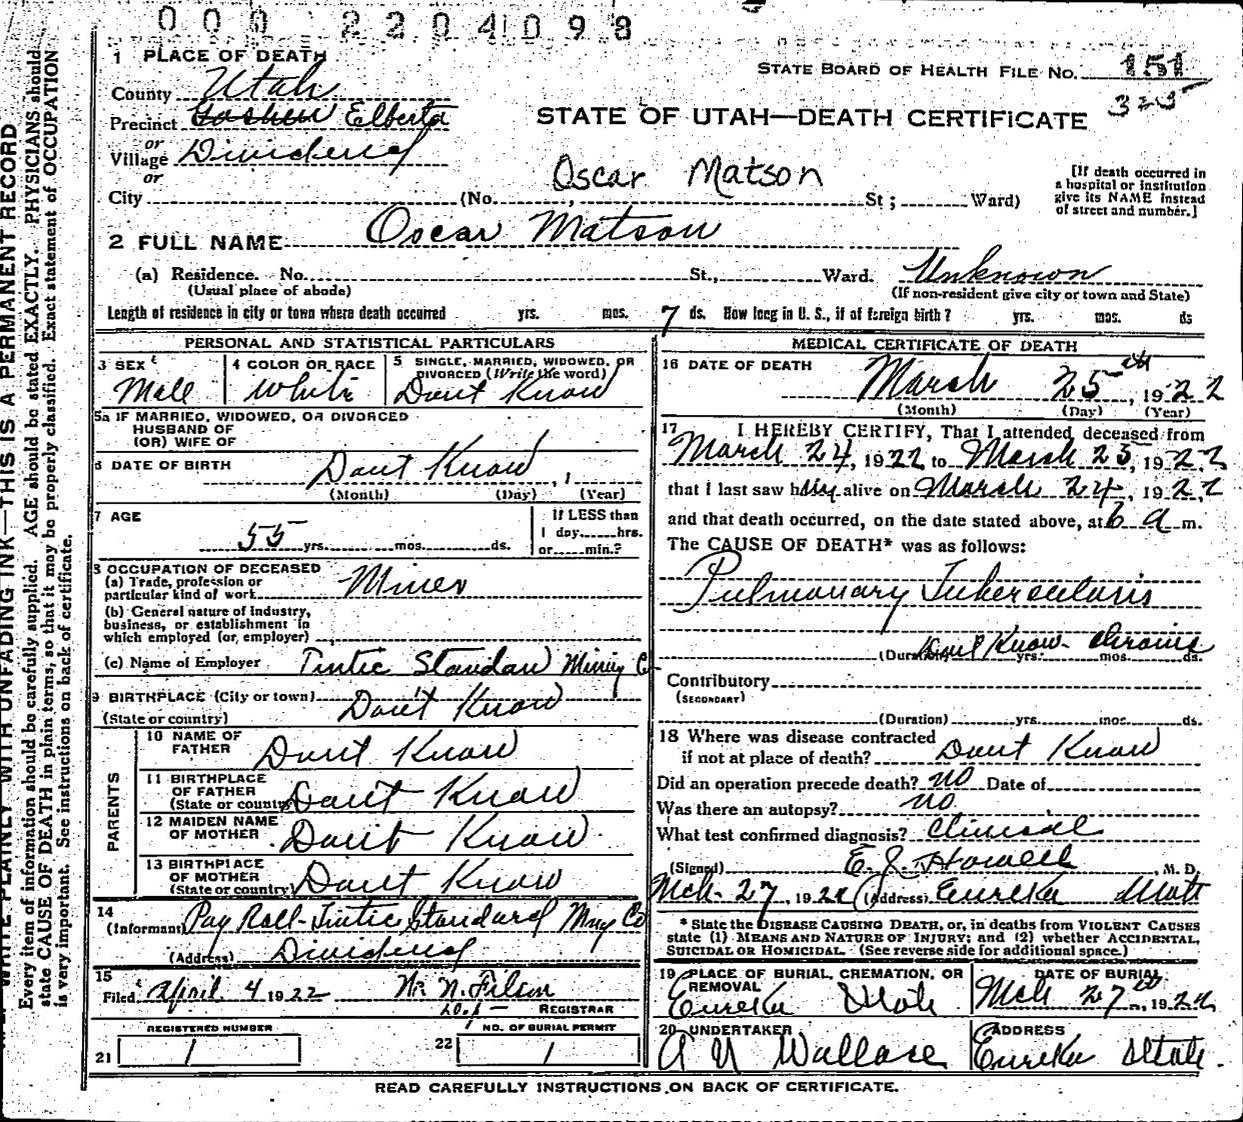 000 2204098
1 PLACE OF DEATH
STATE BOARD OF HEALTH FILE NO. 151
325
County Utah
Precinct Goshen Elberta
STATE OF UTAH—DEATH CERTIFICATE
or
Village Dividend
or
Oscar Matson
[If death occurred in
a hospital or institution
give its NAME instead
of street and number.]
City (No. St; Ward)
2 FULL NAME Oscar Matson
(a) Residence. No. St., Ward. Unknown
(Usual place of abode) (If non-resident give city or town and State)
Length of residence in city or town where death occurred yrs. mos. 7 ds. How long in U. S., if of foreign birth? yrs. mos. ds
PERSONAL AND STATISTICAL PARTICULARS
3 SEX 4 COLOR OR RACE 5 SINGLE, MARRIED, WIDOWED, OR
DIVORCED (Write the word)
Male White Dont Know
5a IF MARRIED, WIDOWED, OR DIVORCED
HUSBAND OF
(OR) WIFE OF
6 DATE OF BIRTH Dont Know , 1
(Month) (Day) (Year)
7 AGE
55 yrs. mos. ds.
If LESS than
1 day hrs.
or min.?
8 OCCUPATION OF DECEASED
(a) Trade, profession or
particular kind of work Miner
(b) General nature of industry,
business, or establishment in
which employed (or, employer)
(c) Name of Employer Tintic Standard Mining Co
9 BIRTHPLACE (City or town) Don't Know
(State or country)
PARENTS
10 NAME OF
FATHER Dont Know
11 BIRTHPLACE
OF FATHER
(State or country) Dont Know
12 MAIDEN NAME
OF MOTHER Dont Know
13 BIRTHPLACE
OF MOTHER
(State or country) Dont Know
14
(Informant) Pay Roll-Tintic Standard Ming Co
(Address) Dividend
15
Filed April 4 1922
REGISTRAR
REGISTERED NUMBER NO. OF BURIAL PERMIT
21 1 22 1
MEDICAL CERTIFICATE OF DEATH
16 DATE OF DEATH March 25th, 1922
(Month) (Day) (Year)
17 I HEREBY CERTIFY, That I attended deceased from
March 24, 1922 to March 25, 1922
that I last saw him alive on March 24, 1922
and that death occurred, on the date stated above, at 6 a m.
The CAUSE OF DEATH* was as follows:
Pulmonary Tuberculosis
(Duration) Dont Know yrs. Chronic mos. ds.
Contributory
(SECONDARY)
(Duration) yrs. mos. ds.
18 Where was disease contracted
if not at place of death? Dont Know
Did an operation precede death? no Date of
Was there an autopsy? no
What test confirmed diagnosis? Clinical
(Signed) E. J. Howell, M. D.
Mch. 27, 1922 (Address) Eureka Utah
* State the DISEASE CAUSING DEATH, or, in deaths from VIOLENT CAUSES
state (1) MEANS AND NATURE OF INJURY; and (2) whether ACCIDENTAL,
SUICIDAL OR HOMICIDAL. (See reverse side for additional space.)
19 PLACE OF BURIAL, CREMATION, OR
REMOVAL
Eureka Utah
DATE OF BURIAL
Mch 27th, 1922
20 UNDERTAKER ADDRESS
A N Wallace Eureka Utah.
READ CAREFULLY INSTRUCTIONS ON BACK OF CERTIFICATE.
WRITE PLAINLY WITH UNFADING INK—THIS IS A PERMANENT RECORD
Every item of information should be carefully supplied. AGE should be stated EXACTLY. PHYSICIANS should
state CAUSE OF DEATH in plain terms, so that it may be properly classified. Exact statement of OCCUPATION
is very important. See instructions on back of certificate.